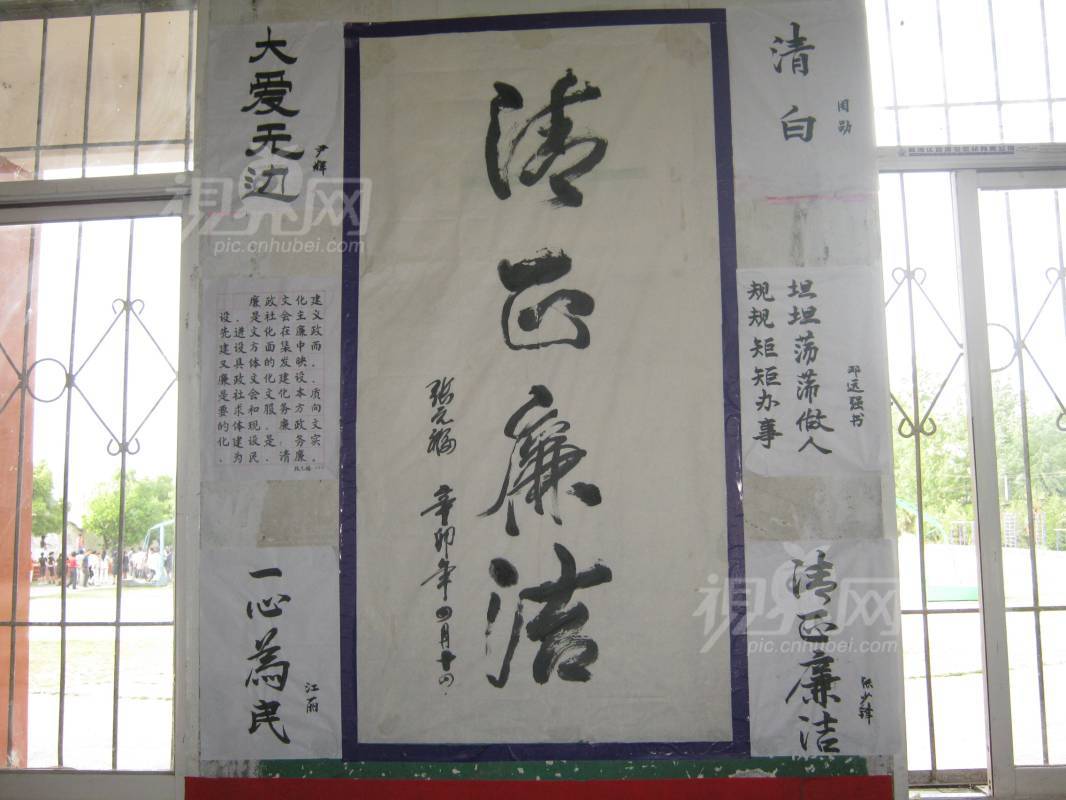 清正廉洁
张元福
辛卯年四月十四
大爱无边
尹辉
廉政文化建
设、是社会主义
先进文化在廉政
建设方面的集中而
又具体的发映、
廉政文化建设、
是社会文化本质
要求和服务方向
的体现、廉政文
化建设、是务实、
为民、清廉、
一心為民
江丽
清白
周勋
坦坦荡荡做人
规规矩矩办事
邓远强书
清正廉洁
张少锋
視界网
pic.cnhubei.com
視界网
pic.cnhubei.com